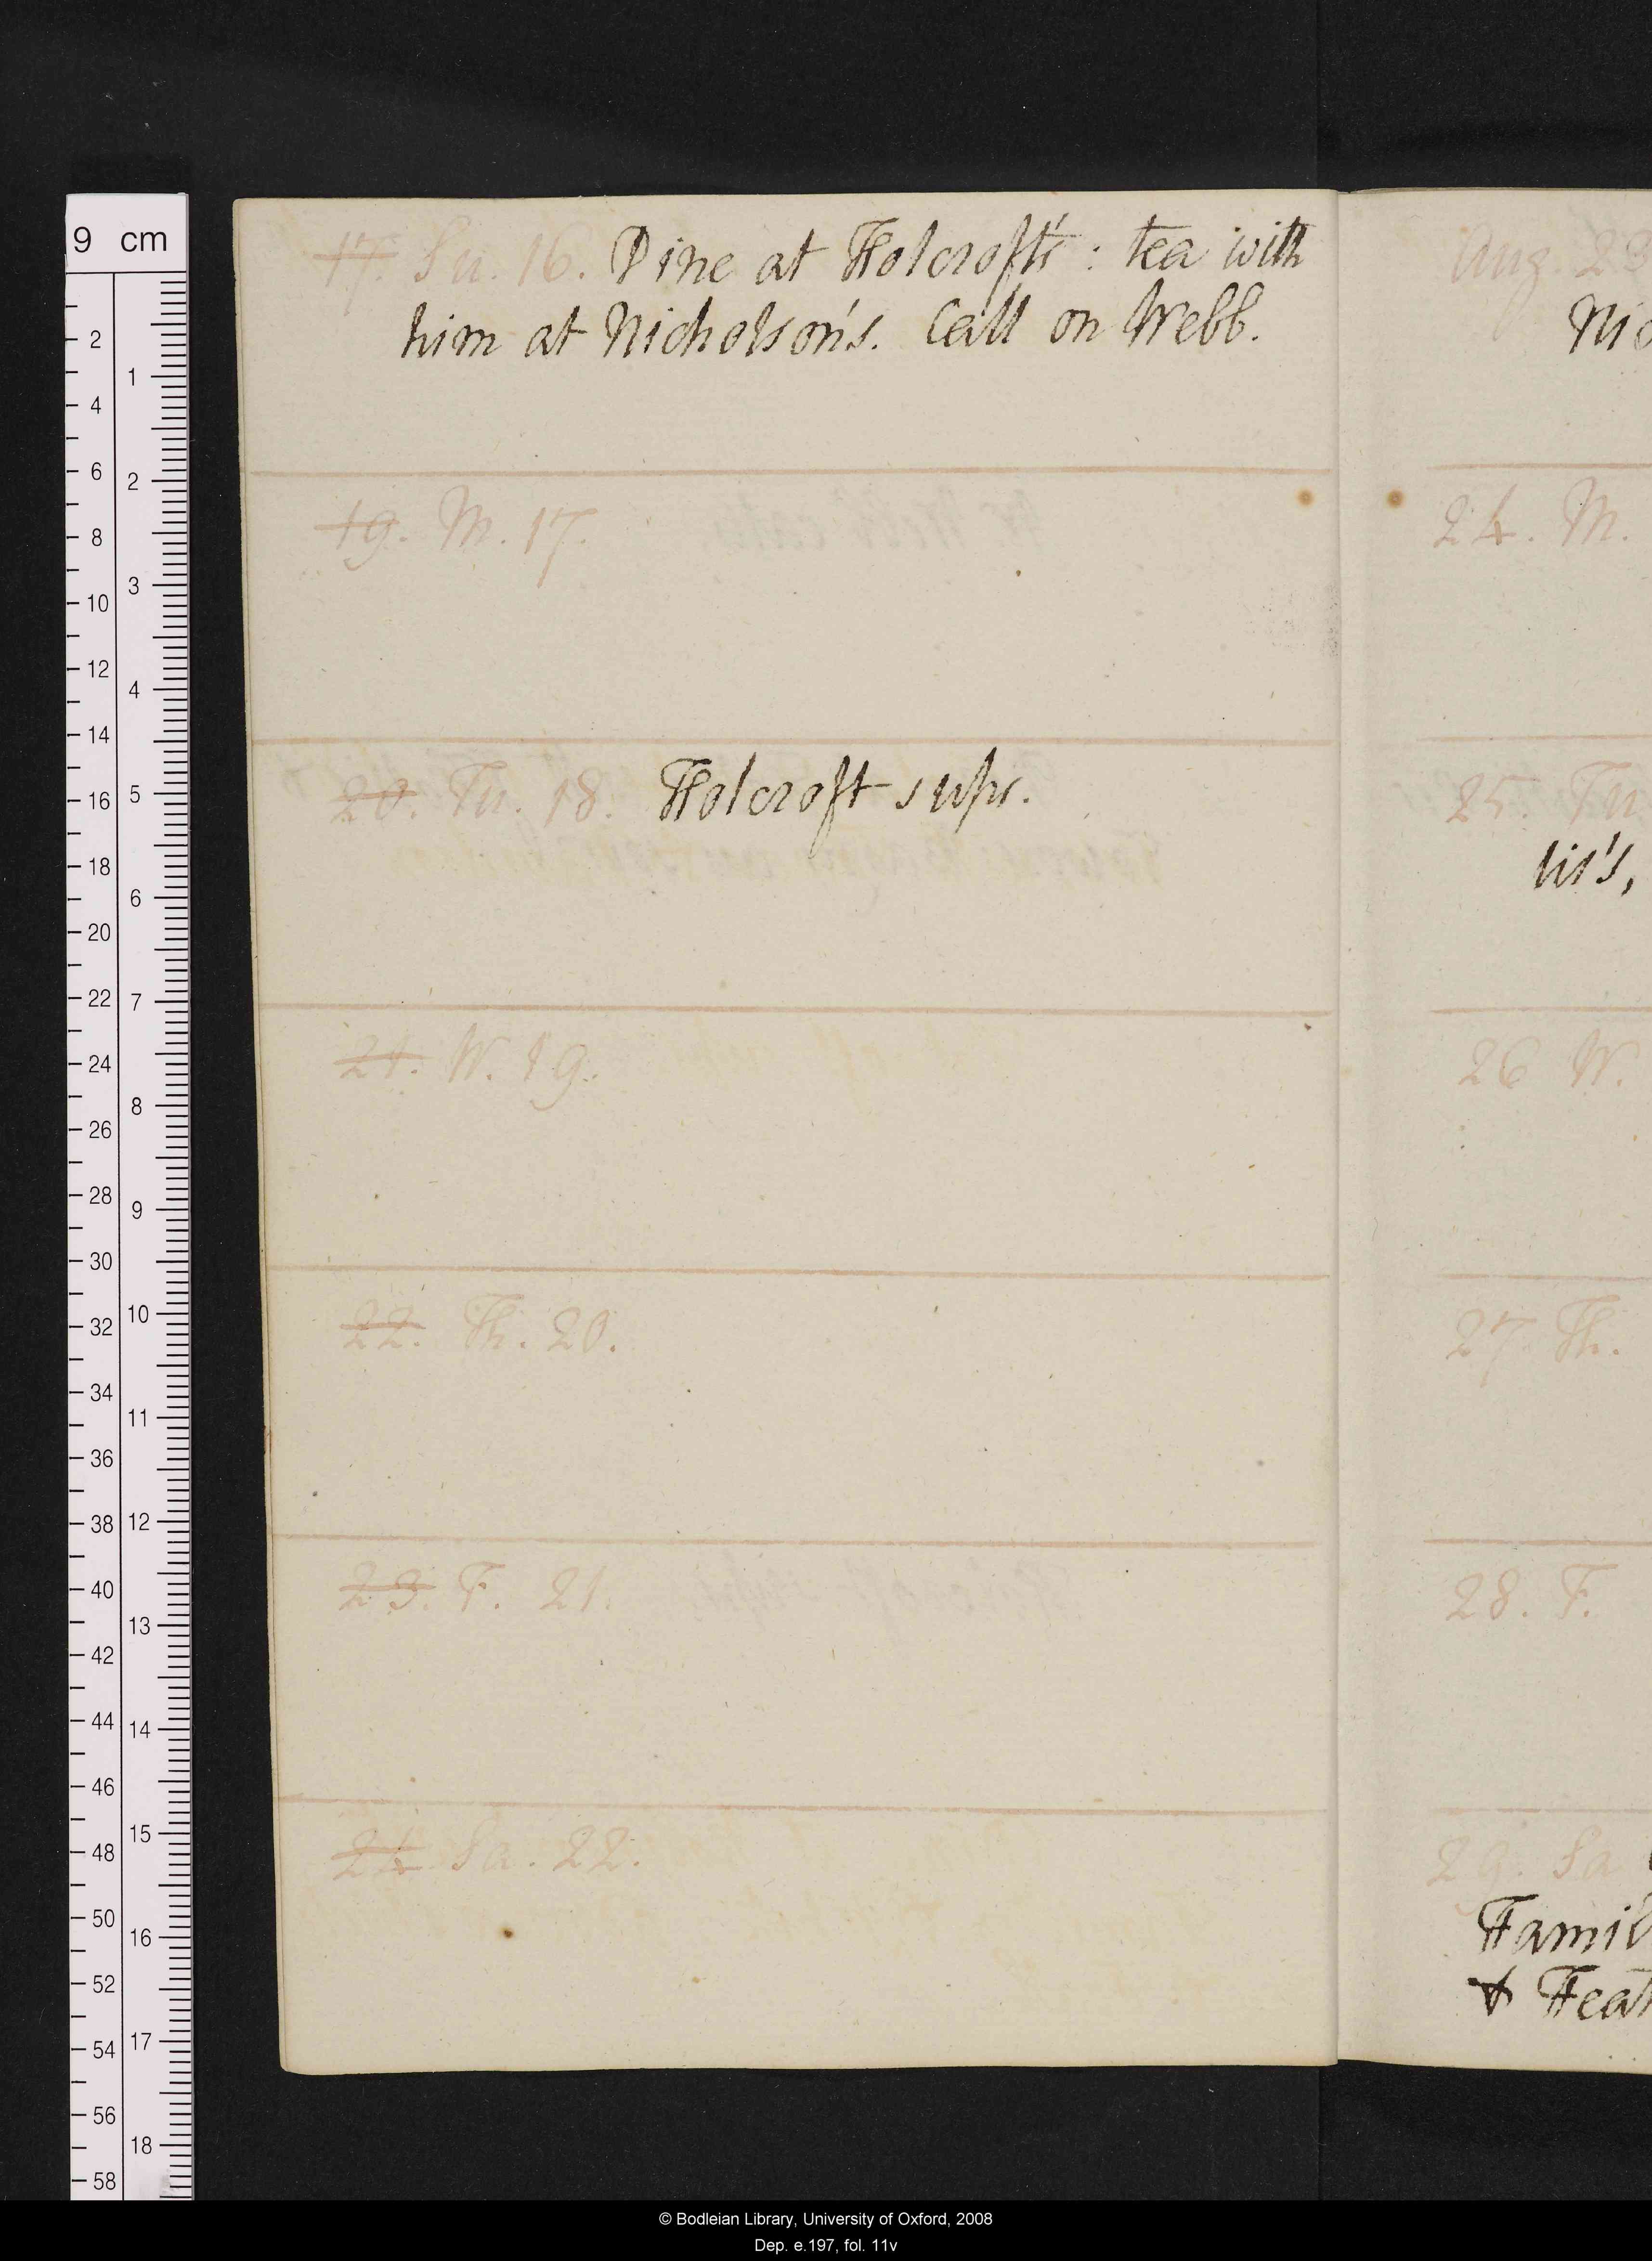 17. Su. 16. Dine at Holcroft's: tea with
him at Nicholson's. Call on Webb.
19. M. 17.
20. Tu. 18. Holcroft sups.
21. W. 19.
22. Th. 20.
23. F. 21.
24. Sa. 22.
Aug. 23
Nic
24. M.
25. Tu
lis's,
26 W.
27. Th.
28. F.
29. Sa
Famil
& Feat
9 cm
2
4
6
8
10
12
14
16
18
20
22
24
26
28
30
32
34
36
38
40
42
44
46
48
50
52
54
56
58
1
2
3
4
5
6
7
8
9
10
11
12
13
14
15
16
17
18
© Bodleian Library, University of Oxford, 2008
Dep. e.197, fol. 11v